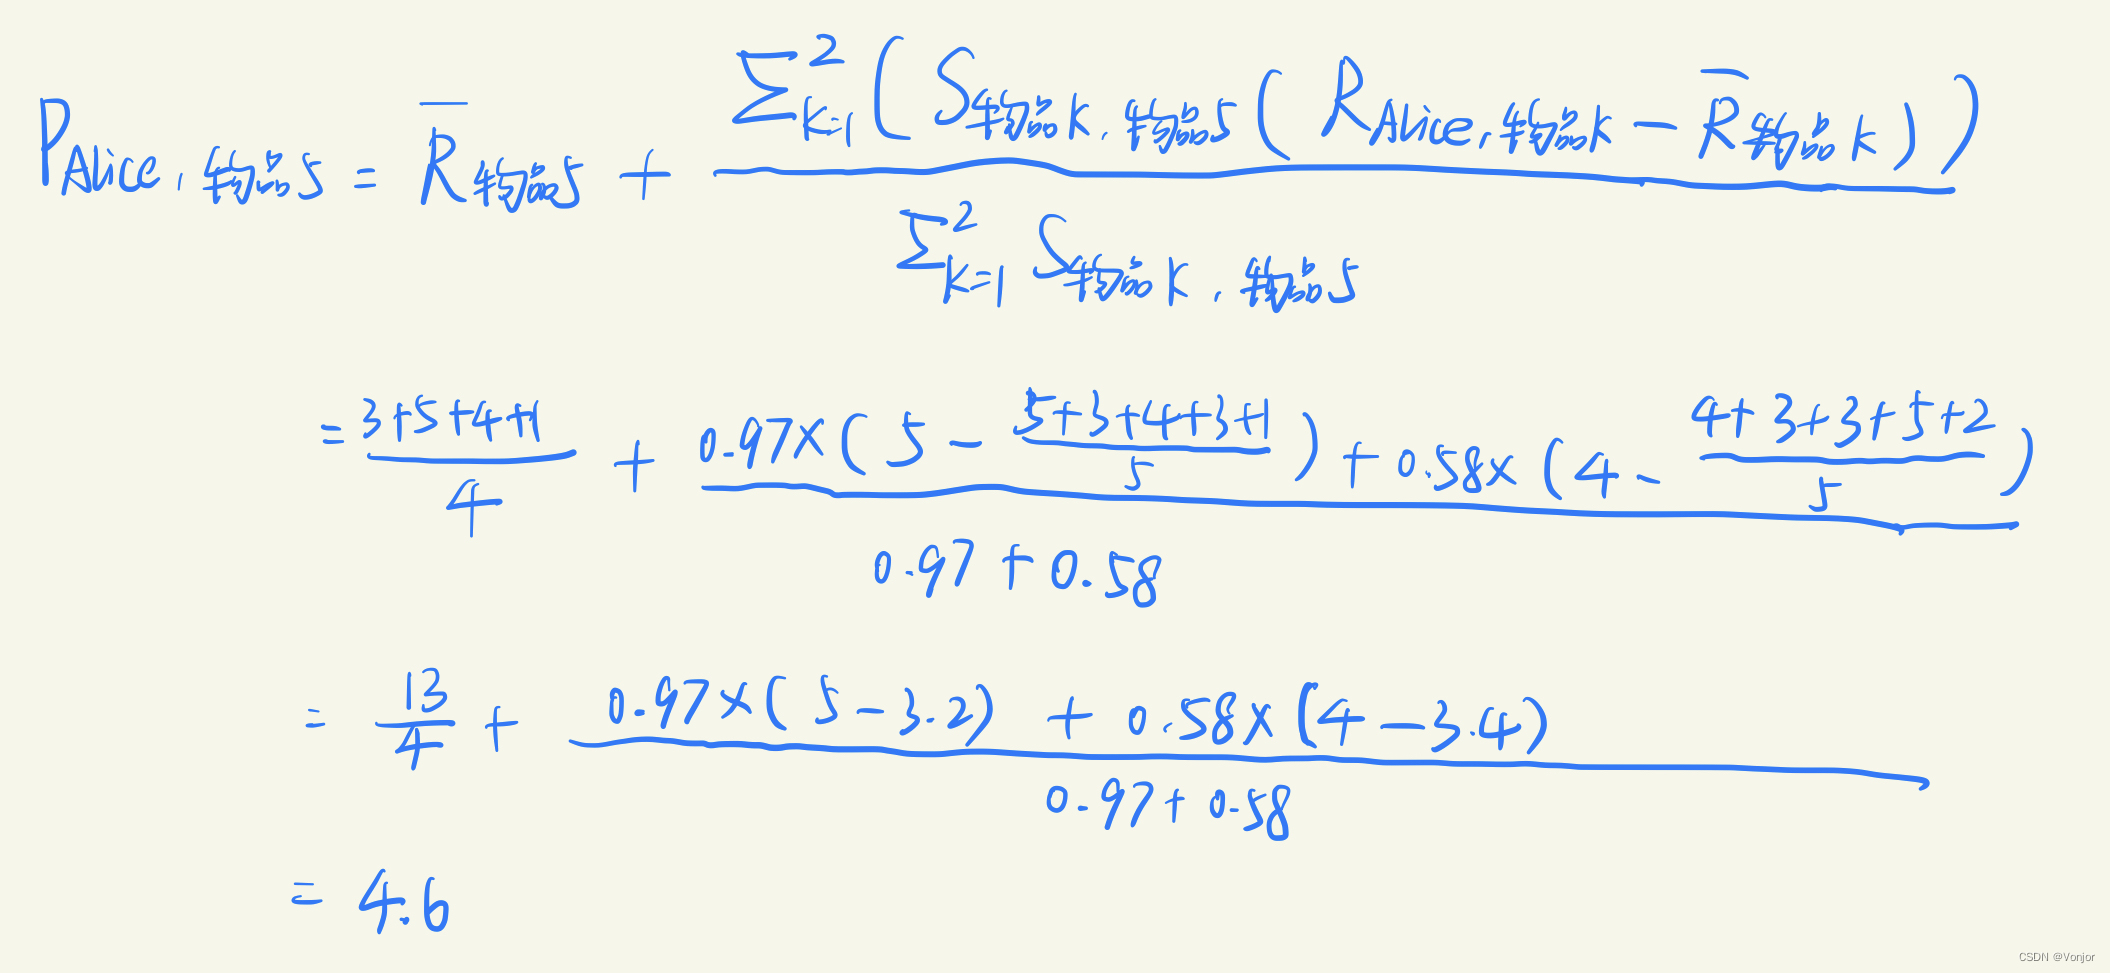 P_{Alice, 物品5} = \overline{R}_{物品5} + \frac{\sum_{k=1}^{2} ( S_{物品k, 物品5} ( R_{Alice, 物品k} - \overline{R}_{物品k} ) )}{\sum_{k=1}^{2} S_{物品k, 物品5}}
= \frac{3+5+4+1}{4} + \frac{0.97×( 5 - \frac{5+3+4+3+1}{5} ) + 0.58×( 4 - \frac{4+3+3+5+2}{5} )}{0.97+0.58}
= \frac{13}{4} + \frac{0.97×( 5-3.2 ) + 0.58×( 4-3.4 )}{0.97+0.58}
= 4.6
CSDN @Vonjor